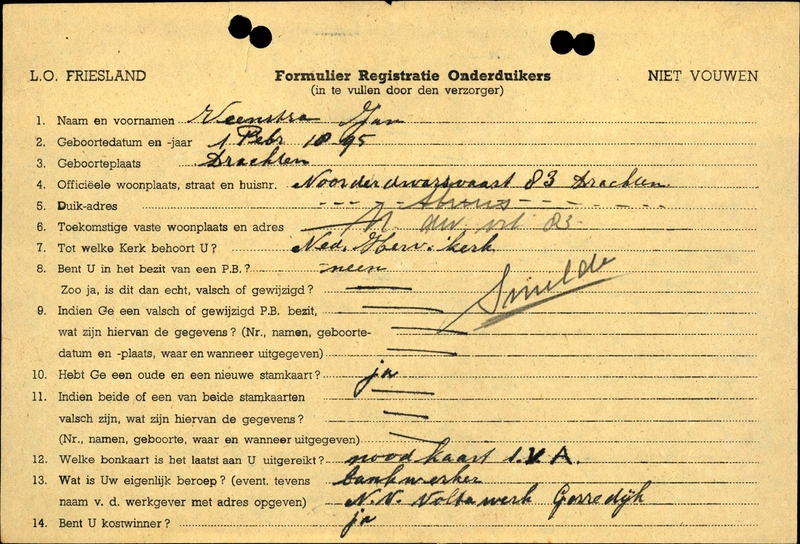 L.O. FRIESLAND Formulier Registratie Onderduikers NIET VOUWEN
(in te vullen door den verzorger)
1. Naam en voornamen Veenstra Jan
2. Geboortedatum en -jaar 1 Febr 1895
3. Geboorteplaats Drachten
4. Officiëele woonplaats, straat en huisnr. Noorderdwarsvaart 83 Drachten.
5. Duik-adres
6. Toekomstige vaste woonplaats en adres N. dw. vrt 83
7. Tot welke Kerk behoort U? Ned. Herv. kerk
8. Bent U in het bezit van een P.B.? neen
Zoo ja, is dit dan echt, valsch of gewijzigd?
Smilde
9. Indien Ge een valsch of gewijzigd P.B. bezit,
wat zijn hiervan de gegevens? (Nr., namen, geboorte-
datum en -plaats, waar en wanneer uitgegeven)
10. Hebt Ge een oude en een nieuwe stamkaart? ja
11. Indien beide of een van beide stamkaarten
valsch zijn, wat zijn hiervan de gegevens?
(Nr., namen, geboorte, waar en wanneer uitgegeven)
12. Welke bonkaart is het laatst aan U uitgereikt? noodkaart 1.V A.
13. Wat is Uw eigenlijk beroep? (event. tevens Bankwerker
naam v. d. werkgever met adres opgeven) N.V. Voltawerk Gorredijk
14. Bent U kostwinner? ja